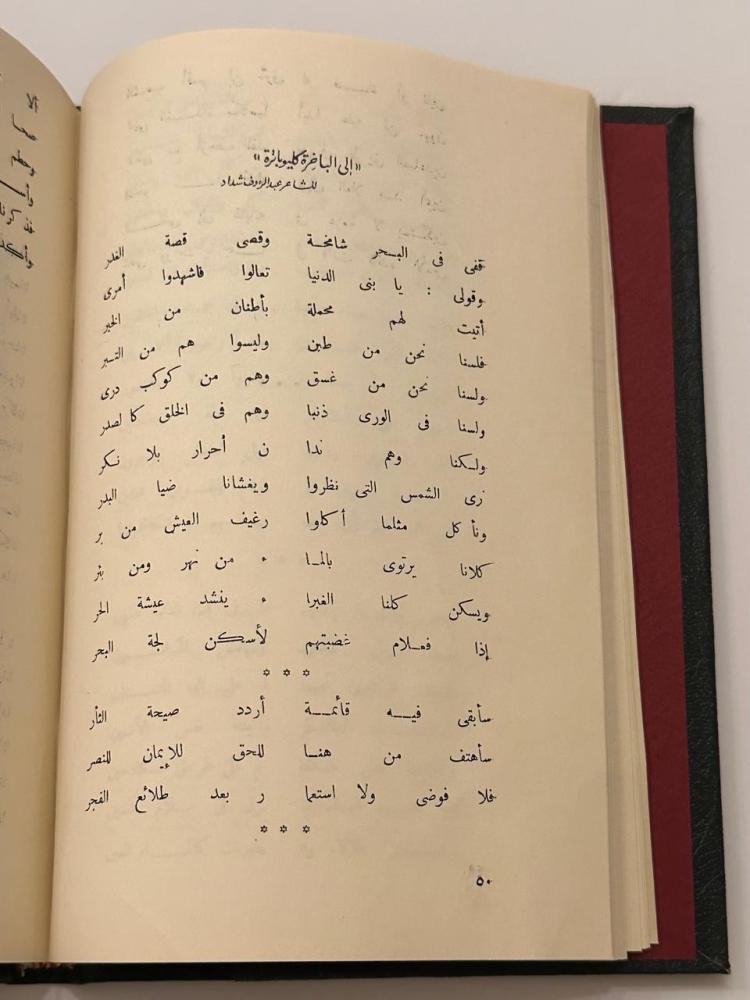 «إلى الباخرة كليوباترة»
للشاعر عبد الرؤوف شداد
قفى فى البحر شامخة وقصى قصة الغدر
وقولى : يا بنى الدنيا تعالوا فاشهدوا أمرى
أتيت لهم محملة بأطنان من الخير
فلسنا نحن من طين وليسوا هم من التبر
ولسنا نحن من غسق وهم من كوكب درى
ولسنا فى الورى ذنبا وهم فى الخلق كالصدر
ولكنا وهم ندا ن أحرار بلا نكر
نرى الشمس التى نظروا ويغشانا ضيا البدر
ونأكل مثلما أكلوا رغيف العيش من بر
كلانا يرتوى بالمـا ء من نهر ومن بئر
ويسكن كلنا الغبرا ء ينشد عيشة الحر
إذا فعلام غضبتهم لأسكن لجة البحر
* * *
سأبقى فيه قائمة أردد صيحة الثأر
سأهتف من هنا للحق للإيمان للنصر
فلا فوضى ولا استعما ر بعد طلائع الفجر
* * *
٥٠
ألا
صحا
وحطم
وأسـ
وأكد